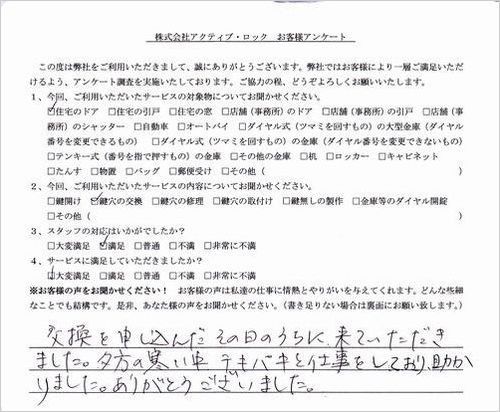 株式会社アクティブ・ロック　お客様アンケート
この度は弊社をご利用いただきまして、誠にありがとうございます。弊社ではお客様により一層ご満足いただ
けるよう、アンケート調査を実施いたしております。ご協力の程、どうぞよろしくお願いいたします。
1、今回、ご利用いただいたサービスの対象物についてお聞かせください。
☑住宅のドア　□住宅の引戸　□住宅の窓　□店舗（事務所）のドア　□店舗（事務所）の引戸　□店舗（事
務所）のシャッター　□自動車　□オートバイ　□ダイヤル式（ツマミを回すもの）の大型金庫（ダイヤル
番号を変更できるもの）　□ダイヤル式（ツマミを回すもの）の金庫（ダイヤル番号を変更できないもの）
□テンキー式（番号を指で押すもの）の金庫　□その他の金庫　□机　□ロッカー　□キャビネット
□たんす　□物置　□バッグ　□郵便受け　□その他（
2、今回、ご利用いただいたサービスの内容についてお聞かせください。
□鍵開け　☑鍵穴の交換　□鍵穴の修理　□鍵穴の取付け　□鍵無しの製作　□金庫等のダイヤル開錠
□その他（　）
3、スタッフの対応はいかがでしたか？
□大変満足　☑満足　□普通　□不満　□非常に不満
4、サービスに満足していただきましたか？
☑大変満足　□満足　□普通　□不満　□非常に不満
※お客様の声をお聞かせください！　お客様の声は私達の仕事に情熱とやりがいを与えてくれます。どんな些細
なことでも結構です。是非、あなた様の声をお聞かせください。（書き足りない場合は裏面にお願い致します。）
交換を申し込んだその日のうちに、来ていただき
ました。夕方の寒い中テキパキと仕事をしており、助か
りました。ありがとうございました。